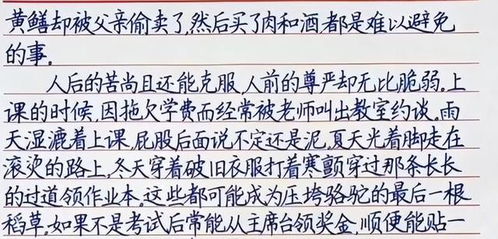 黄鳝却被父亲偷卖了,然后买了肉和酒,都是难以避免
的事。
人后的苦尚且还能克服,人前的尊严却无比脆弱。上
课的时候,因拖欠学费而经常被老师叫出教室约谈。雨
天湿漉着上课,屁股后面说不定还是泥。夏天光着脚走在
滚烫的路上。冬天穿着破旧衣服打着寒颤穿过那条长长
的过道领作业本。这些都可能成为压垮骆驼的最后一根
稻草。如果不是考试后常能从主席台领奖金,顺便能贴一